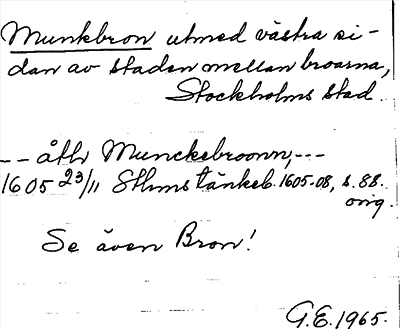 Munkbron utmed västra si-
dan av staden mellan broarna,
Stockholms stad.
-- åth Munckebroonn, ---
1605 23/11 Sthms tänkeb. 1605-08, s. 88.
orig.
Se även Bron!
G.E. 1965.